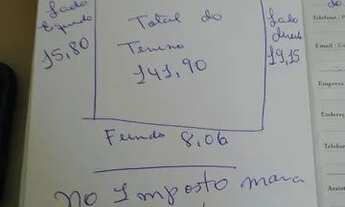 Lado
Esquerdo
15,80
Total do
Terreno
141,90
Lado
direito
19,15
Fundo 8,06
No Imposto marca
Telefone
Email
Empresa
Endereç
Telefon
Assist